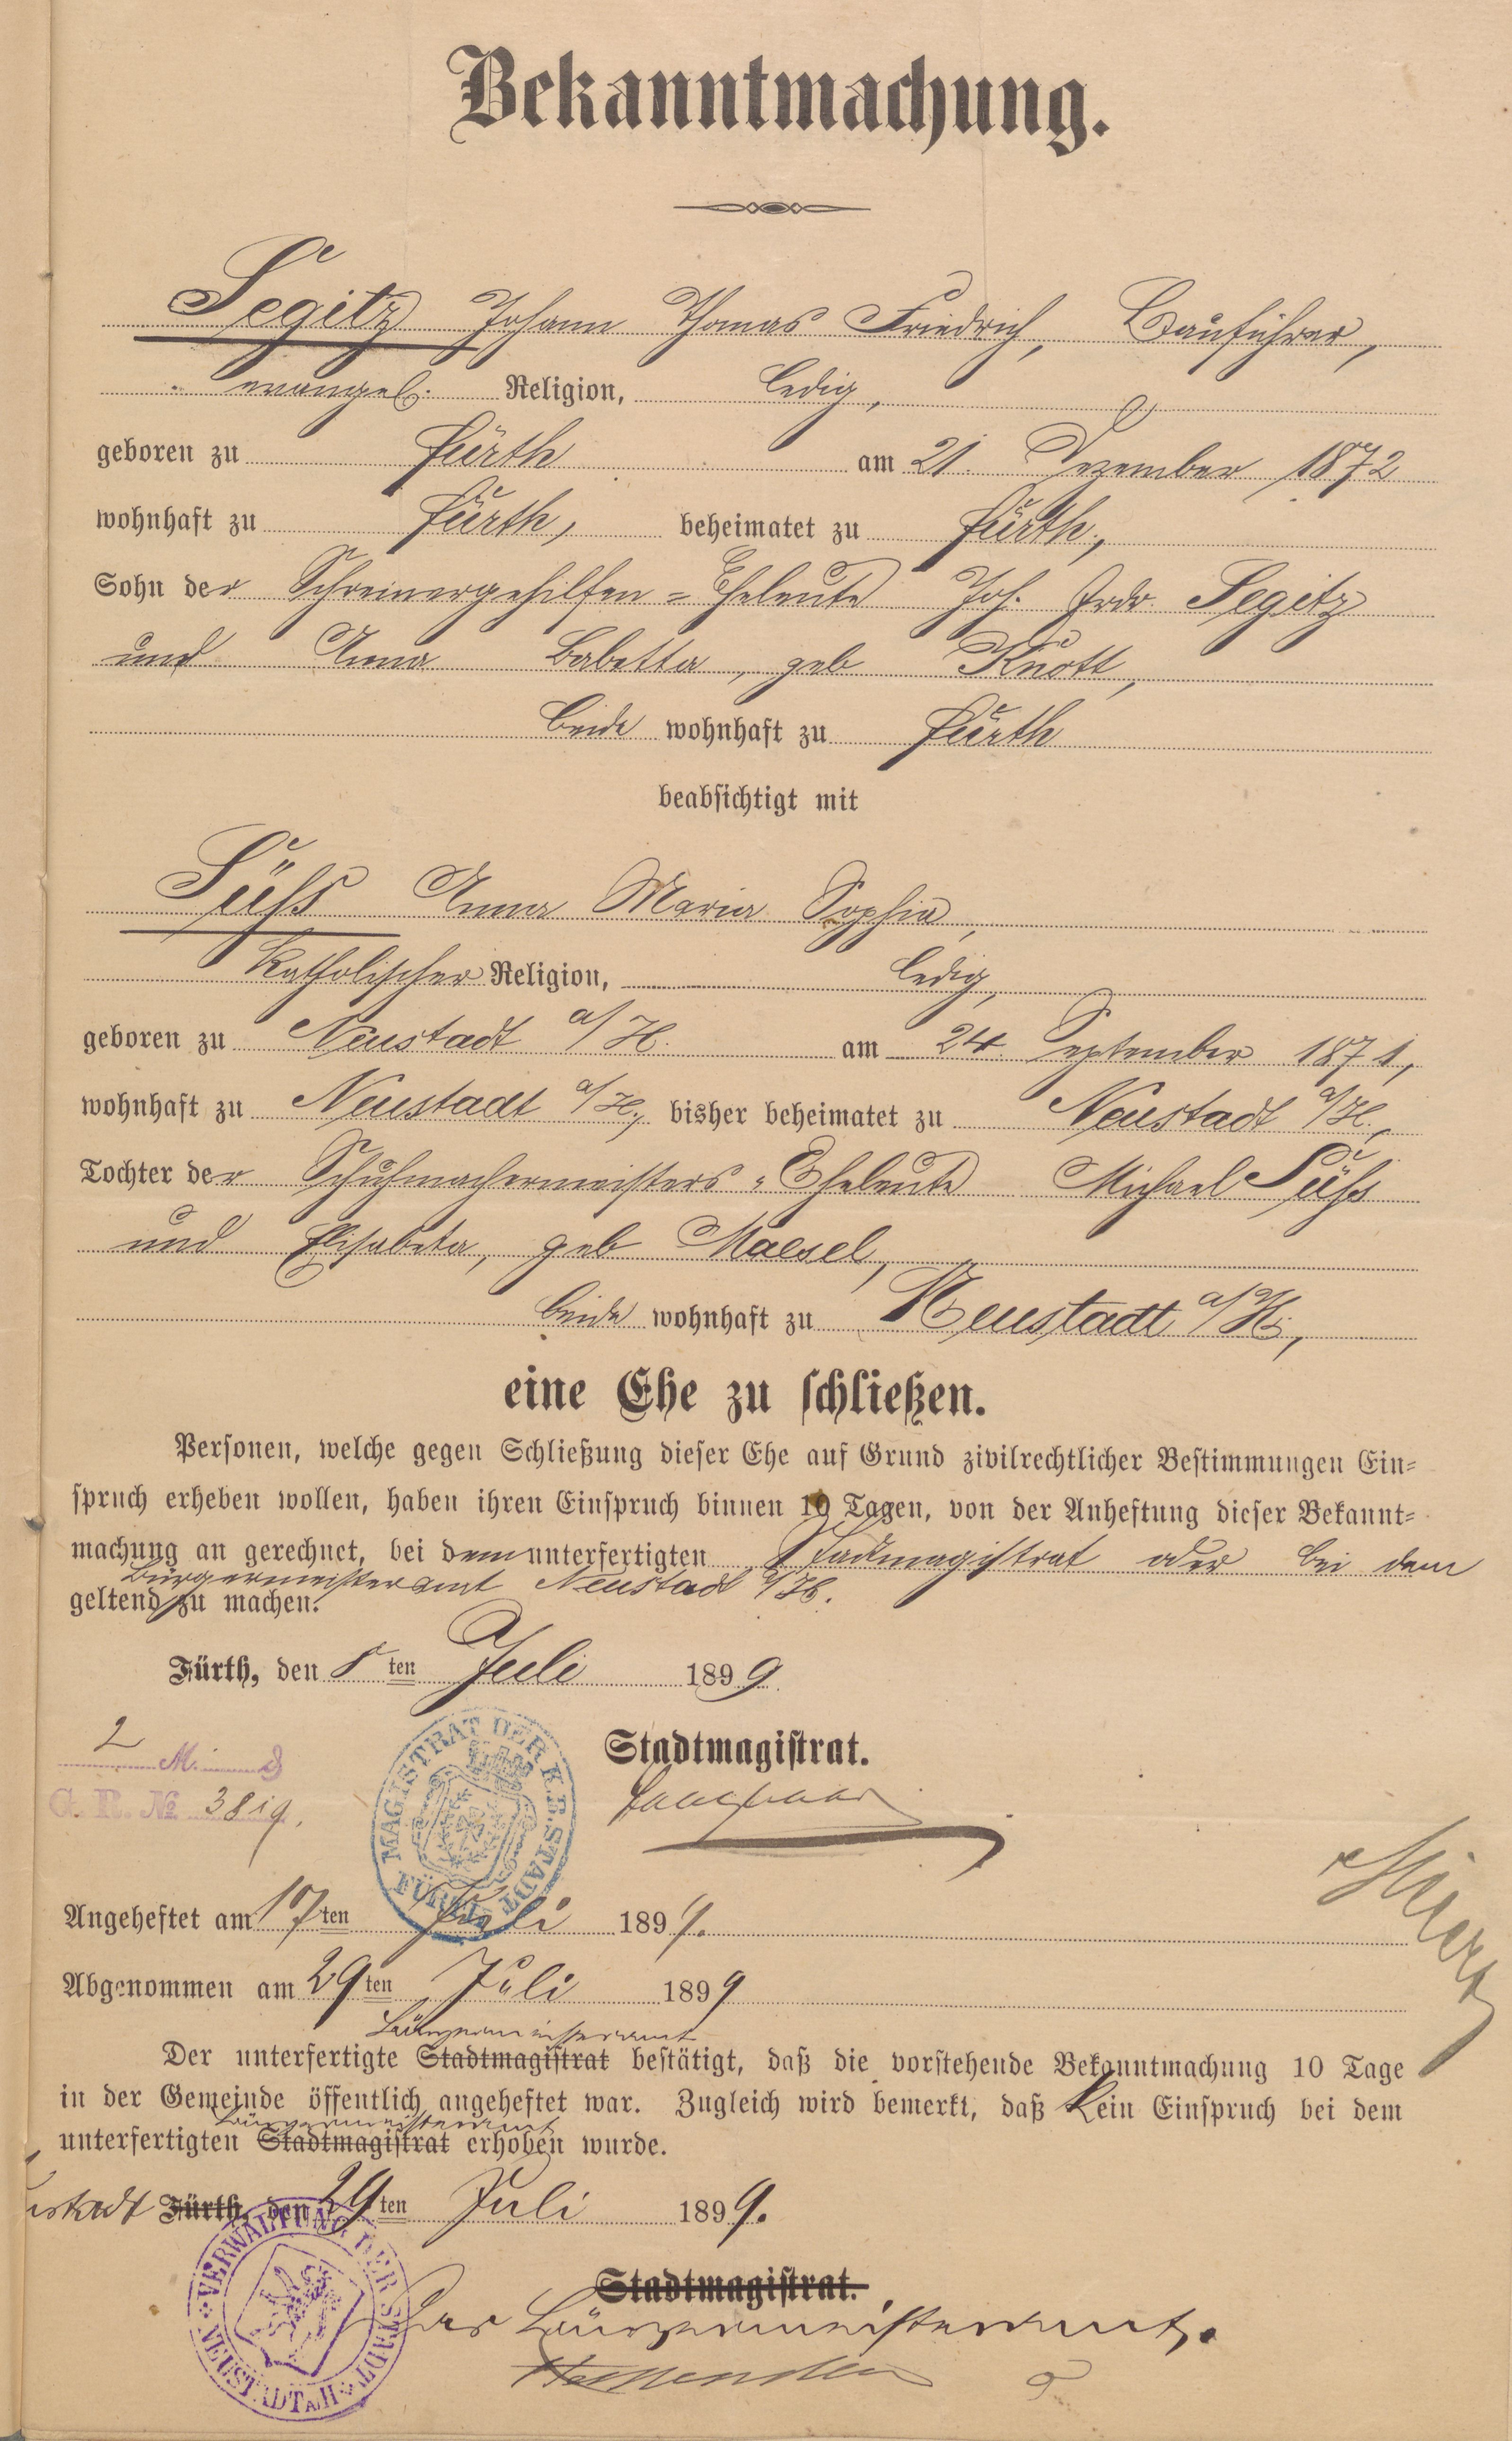 Bekanntmachung.
Segitz Johann Thomas Friedrich, Bauführer,
evangel. Religion, ledig,
geboren zu Fürth am 21. Dezember 1872
wohnhaft zu Fürth, beheimatet zu Fürth,
Sohn der Schreinergehilfen-Eheleute Joh. Frdr. Segitz
und Anna Babetta, geb Knott,
beide wohnhaft zu Fürth
beabsichtigt mit
Süß Anna Maria Sophia,
katholischer Religion, ledig,
geboren zu Neustadt a/H. am 24. September 1871,
wohnhaft zu Neustadt a/H., bisher beheimatet zu Neustadt a/H.,
Tochter der Schuhmachermeisters-Eheleute Michael Süß
und Elisabeta, geb Maesel,
beide wohnhaft zu Neustadt a/H.,
eine Ehe zu schließen.
Personen, welche gegen Schließung dieser Ehe auf Grund zivilrechtlicher Bestimmungen Ein-
spruch erheben wollen, haben ihren Einspruch binnen 10 Tagen, von der Anheftung dieser Bekannt-
machung an gerechnet, bei dem unterfertigten Stadtmagistrat oder bei dem
Bürgermeisteramt Neustadt a/H.
geltend zu machen.
Fürth, den 8ten Juli 1899
2 M.
G. R. № 3819.
MAGISTRAT DER K. B. STADT FÜRTH
Stadtmagistrat.
Angeheftet am 17ten Juli 1899.
Abgenommen am 29ten Juli 1899
Bürgermeisteramt
Der unterfertigte Stadtmagistrat bestätigt, daß die vorstehende Bekanntmachung 10 Tage
in der Gemeinde öffentlich angeheftet war. Zugleich wird bemerkt, daß kein Einspruch bei dem
Bürgermeisteramt
unterfertigten Stadtmagistrat erhoben wurde.
ustadt Fürth, den 29ten Juli 1899.
VERWALTUNG DER STADT NEUSTADT A/H
Stadtmagistrat.
Das Bürgermeisteramt.